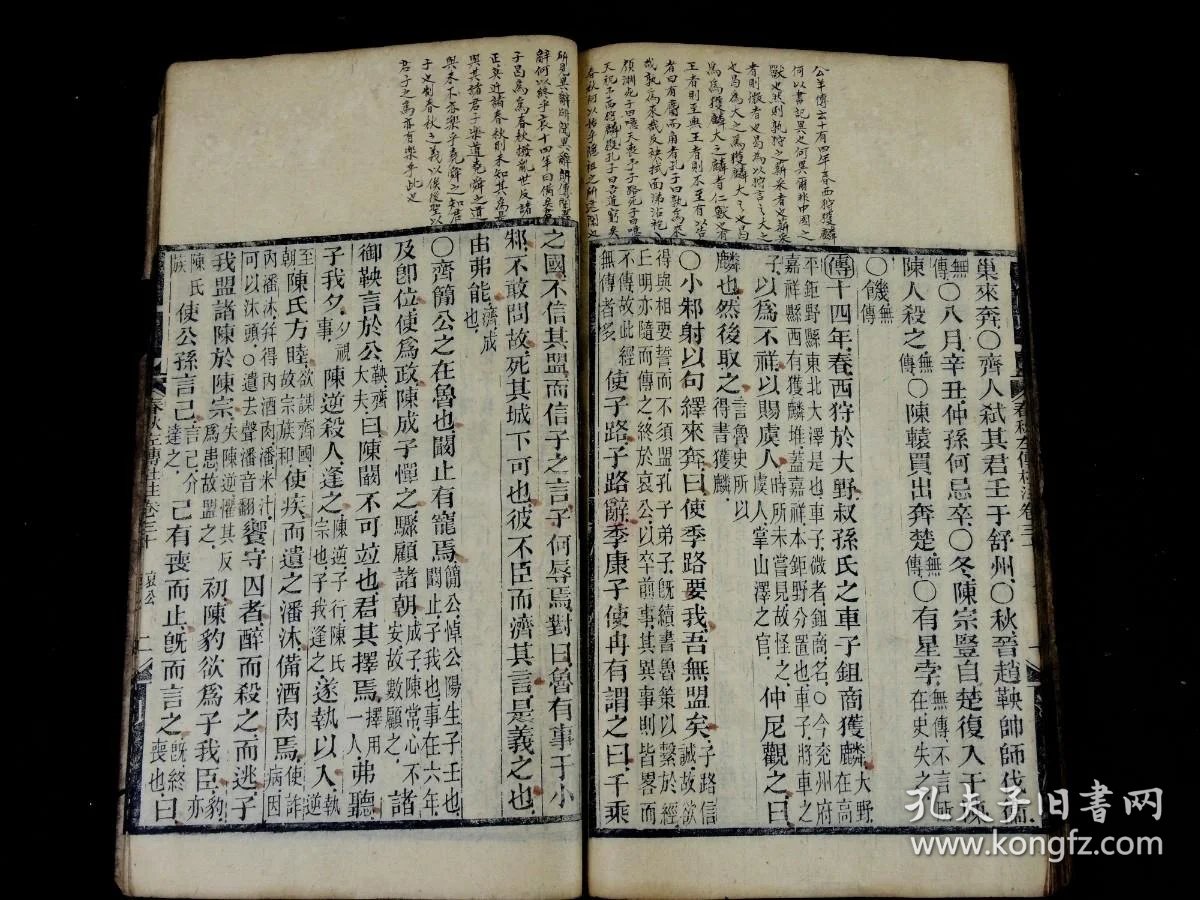 公羊傳云十有四年春西狩獲麟
何以書記異也何異爾非中國之
獸也然則孰狩之薪采者也薪采
者則微者也曷為以狩言之大之
也曷為大之為獲麟大之也曷
為為獲麟大之麟者仁獸也有
王者則至無王者則不至有以告
者曰有麕而角者孔子曰孰為來
哉孰為來哉反袂拭面涕沾袍
顏淵死子曰噫天喪予子路死子曰噫
天祝予西狩獲麟孔子曰吾道窮矣
春秋何以始乎隱祖之所逮聞也
所見異辭所聞異辭所傳聞異
辭何以終乎哀十四年曰備矣君
子曷為為春秋撥亂世反諸
正莫近諸春秋則未知其為是
與其諸君子樂道堯舜之道
與末不亦樂乎堯舜之知君
子也制春秋之義以俟後聖以
君子之為亦有樂乎此也
巢來奔○齊人弒其君壬于舒州○秋晉趙鞅帥師伐衛
無傳○八月辛丑仲孫何忌卒○冬陳宗豎自楚復入于陳
陳人殺之無傳○陳轅買出奔楚無傳○有星孛無傳不言所在史失之
○饑無傳
傳十四年春西狩於大野叔孫氏之車子鉏商獲麟大野在高
平鉅野縣東北大澤是也車子微者鉏商名○今兖州府
嘉祥縣西有獲麟堆蓋嘉祥本鉅野分置也車子將車之
子以為不祥以賜虞人時所未嘗見故怪之虞人掌山澤之官仲尼觀之曰
麟也然後取之言魯史所以得書獲麟
○小邾射以句繹來奔曰使季路要我吾無盟矣子路信誠故欲
得與相要誓而不須盟孔子弟子既續書魯策以繫於經
丘明亦隨而傳之終於哀公以卒前事其異事則皆畧而
不傳故此經無傳者多使子路子路辭季康子使冉有謂之曰千乘
之國不信其盟而信子之言子何辱焉對曰魯有事于小
邾不敢問故死其城下可也彼不臣而濟其言是義之也
由弗能濟成也
○齊簡公之在魯也闞止有寵焉簡公悼公陽生子壬也闞止子我也事在六年
及即位使為政陳成子憚之驟顧諸朝成子陳常心不安故數顧之諸
御鞅言於公鞅齊大夫曰陳闞不可竝也君其擇焉擇用一人弗聽
子我夕夕視事陳逆殺人逢之陳逆子行陳氏宗也子我逢之遂執以入執逆
至朝陳氏方睦欲謀齊國故宗族和使疾而遺之潘沐備酒肉焉使詐病因
內潘沐并得內酒肉潘米汁可以沐頭○遺去聲潘音翻饗守囚者醉而殺之而逃子
我盟諸陳於陳宗失陳逆懼其反為患故盟之初陳豹欲為子我臣豹亦
陳氏族使公孫言己言己介達之己有喪而止既而言之既終喪也曰
春秋左傳杜注卷三十
一
春秋左傳杜注卷三十 哀公
二
孔夫子旧書网
www.kongfz.com